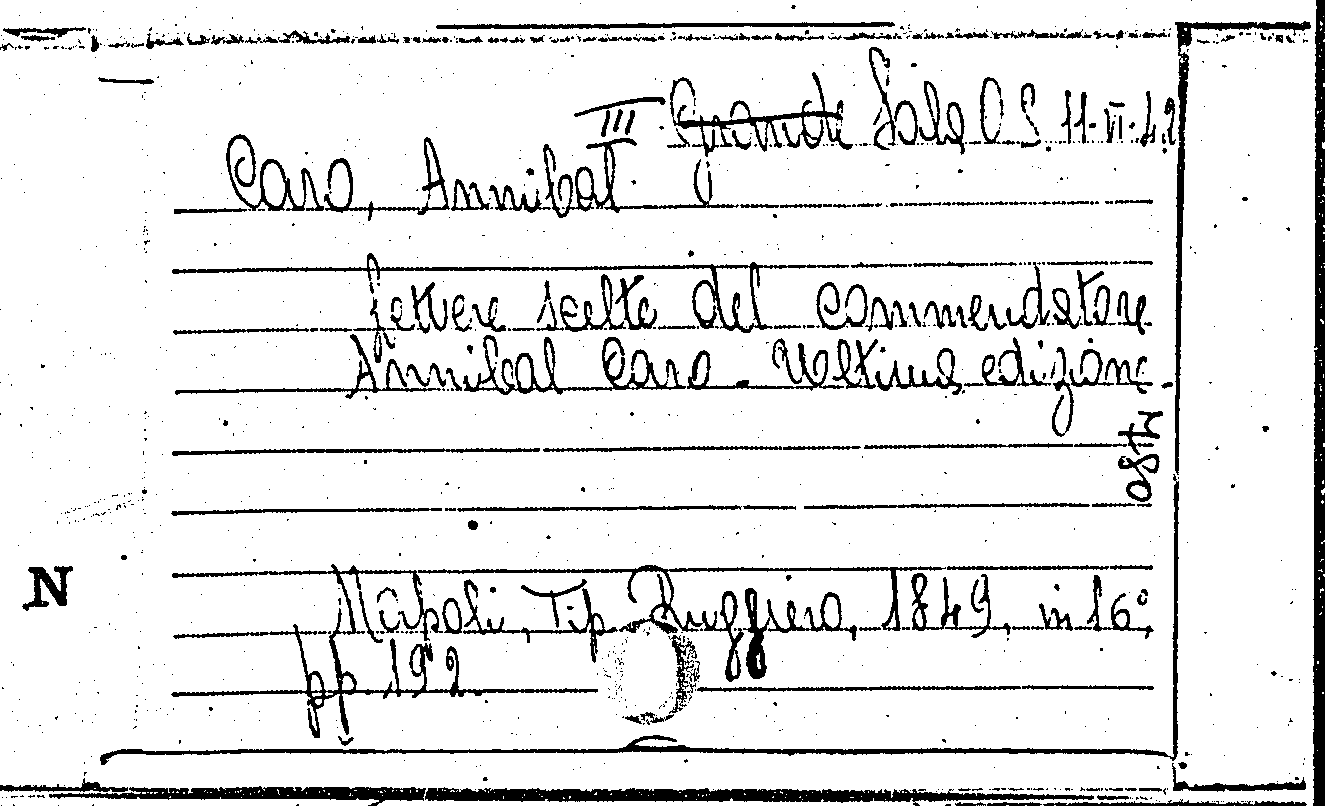 III Grande Sala O S. 11-VI-42
Caro, Annibal
Lettere scelte del commendatore
Annibal Caro - Ultima edizione
N
Napoli, Tip. Ruggiero, 1849, in 16°,
pp. 192.